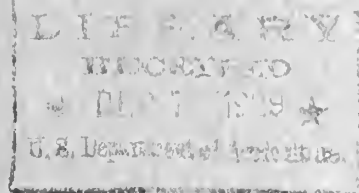 LIBRARY
RECEIVED
★ ★
U. S. Department of Agriculture